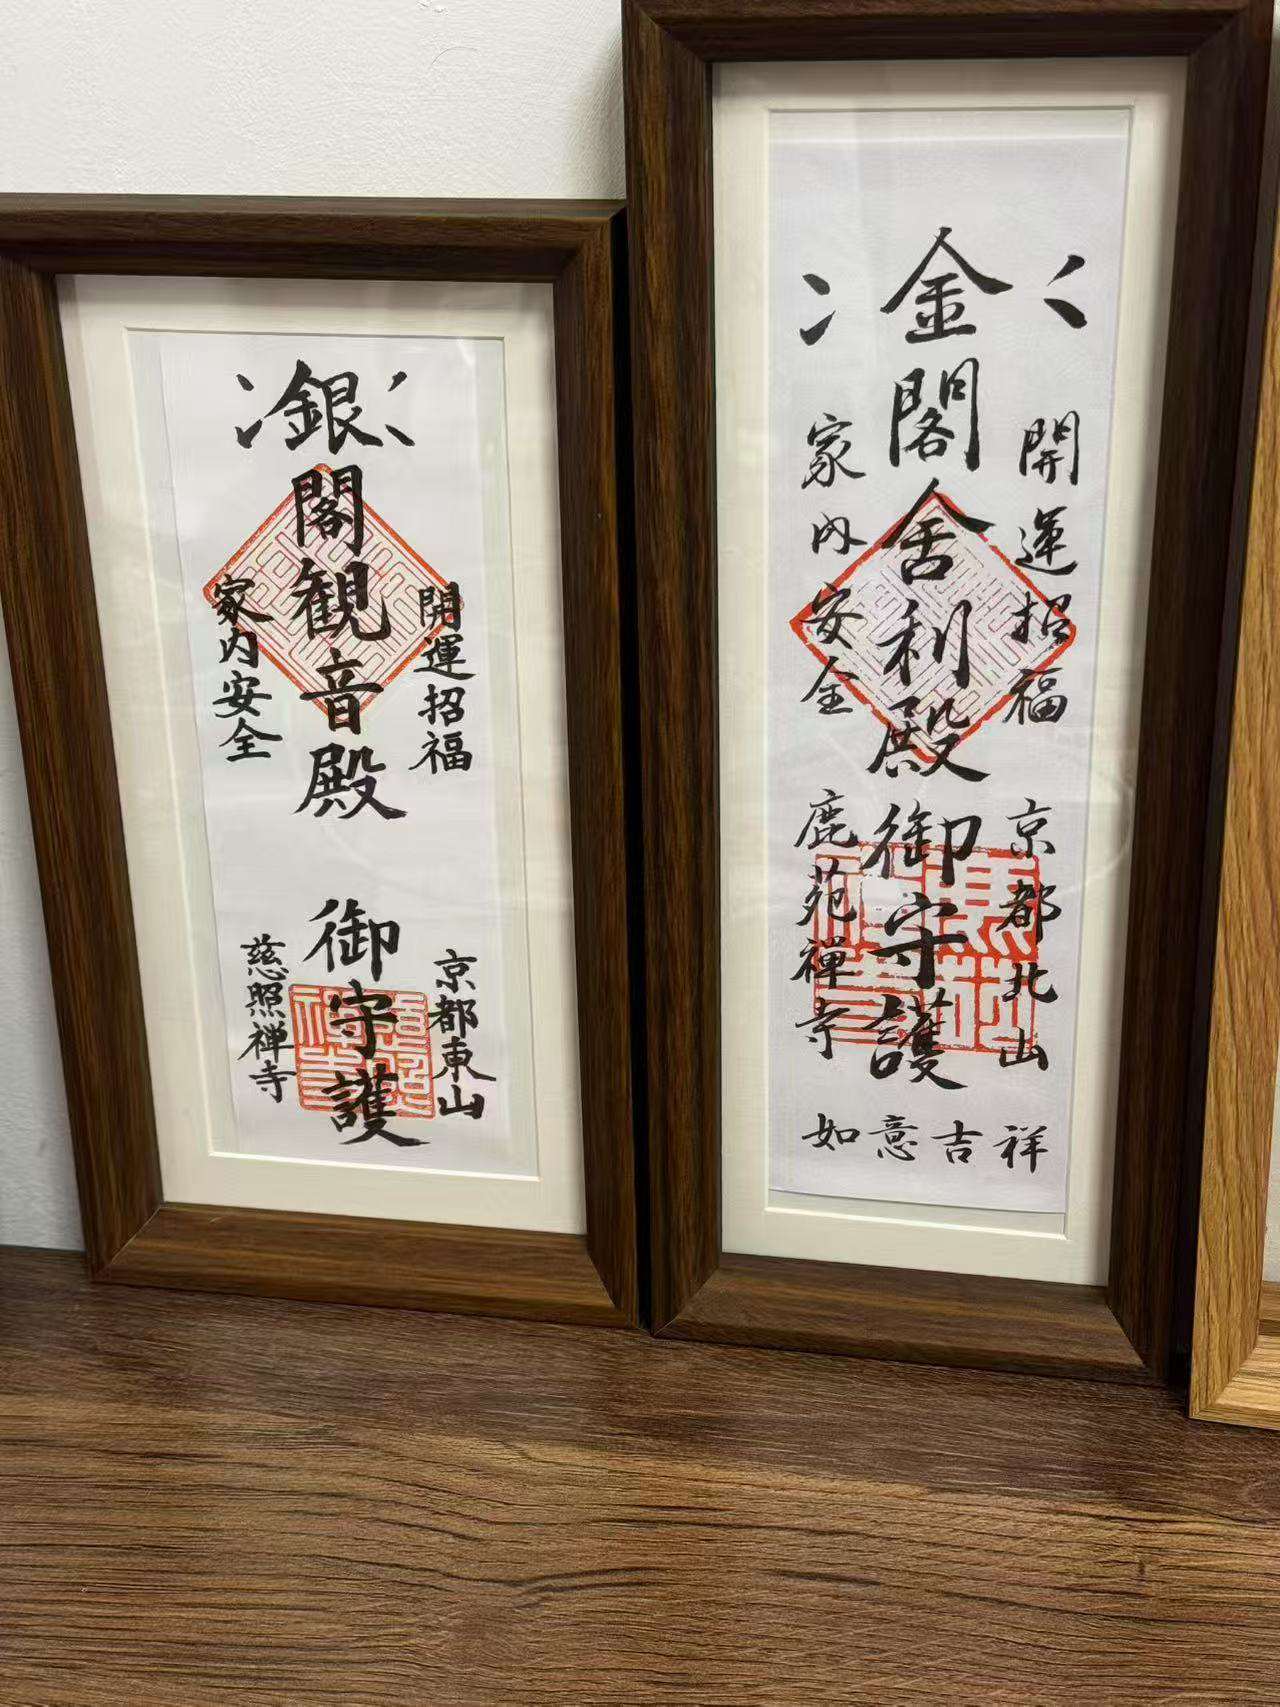 銀閣観音殿 御守護
開運招福
家内安全
京都東山
慈照禅寺
金閣舎利殿御守護
開運招福
家内安全
京都北山
鹿苑禅寺
如意吉祥